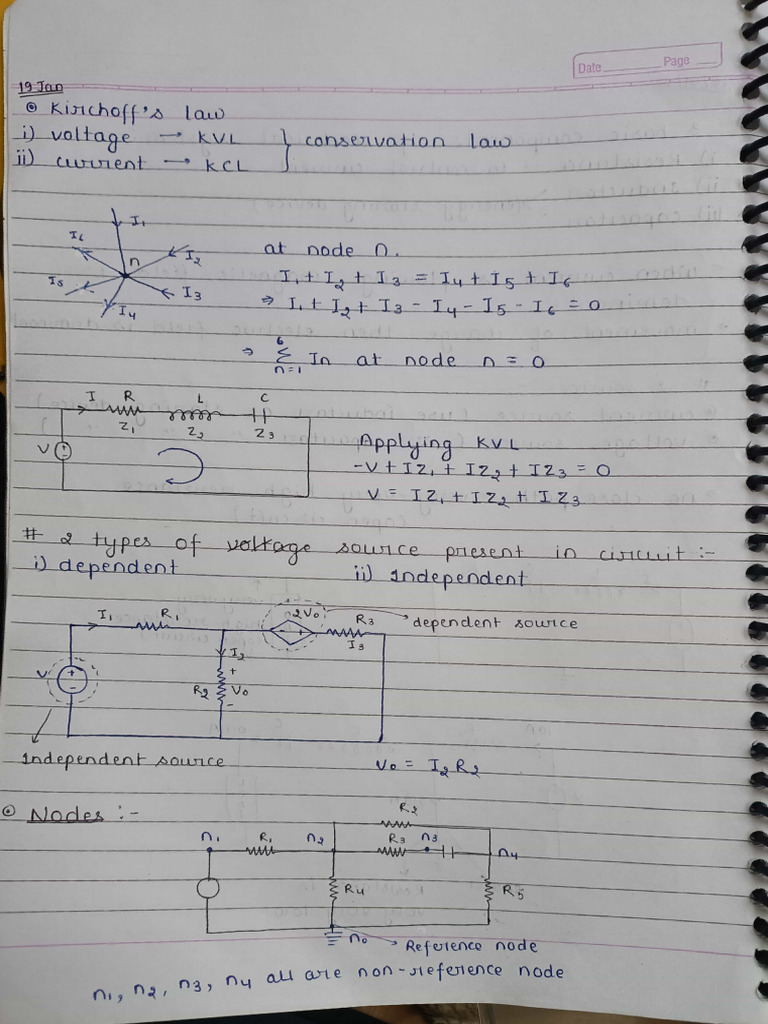 Date Page
19 Jan
⊙ Kirchoff's law
i) voltage → KVL } conservation law
ii) current → KCL
I1
I6
n
I2
I5
I3
I4
at node n.
I1 + I2 + I3 = I4 + I5 + I6
⇒ I1 + I2 + I3 - I4 - I5 - I6 = 0
⇒ 6 Σ n=1 In at node n = 0
I R L C
Z1 Z2 Z3
V
Applying KVL
-V + IZ1 + IZ2 + IZ3 = 0
V = IZ1 + IZ2 + IZ3
# 2 types of voltage source present in circuit :-
i) dependent ii) Independent
I1 R1 2V0 R3 → dependent source
- +
I3
I2
V + - R2 + V0 -
Independent source
V0 = I2R2
⊙ Nodes :-
R2
n1 R1 n2 R3 n3
n4
R4 R5
n0 → Reference node
n1, n2, n3, n4 all are non-reference node